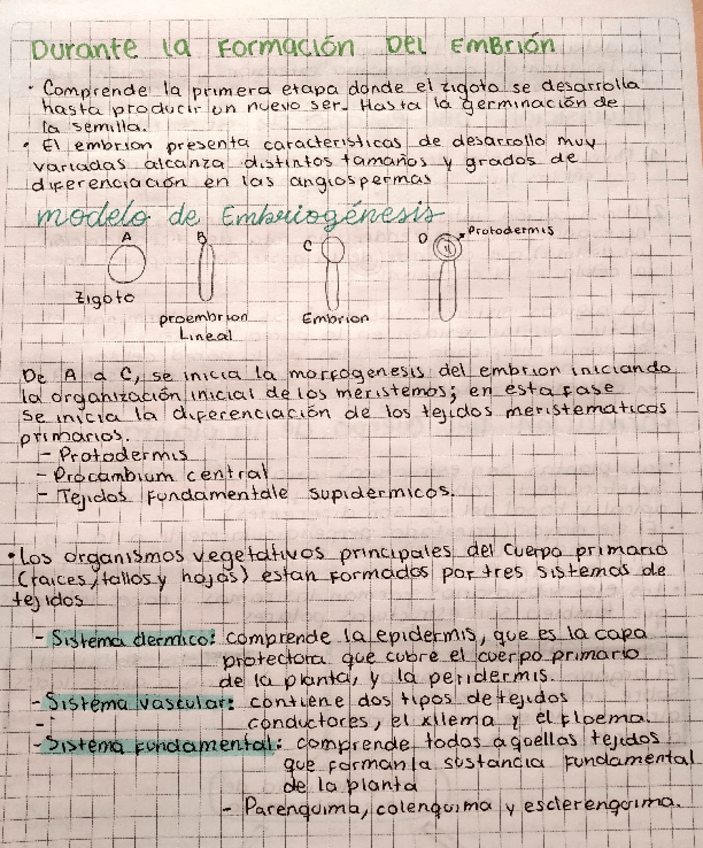 Durante la Formación Del Embrión
· Comprende la primera etapa donde el zigoto se desarrolla
hasta producir un nuevo ser. Hasta la germinación de
la semilla.
· El embrion presenta caracteristicas de desarrollo muy
variadas alcanza distintos tamaños y grados de
diferenciación en las angiospermas
modelo de Embriogénesis
A B C D Protodermis
Zigoto
proembrion Embrion
Lineal
De A a C, se inicia la morfogenesis del embrion iniciando
la organización inicial de los meristemos; en esta fase
se inicia la diferenciación de los tejidos meristematicos
primarios.
- Protodermis
- Procambium central
- Tejidos Fundamentale supidermicos.
· Los organismos vegetativos principales del cuerpo primario
(raices, tallos y hojas) estan formados por tres sistemas de
tejidos
- Sistema dermico: comprende la epidermis, que es la capa
protectora que cubre el cuerpo primario
de la planta, y la peridermis.
- Sistema vascular: contiene dos tipos de tejidos
- conductores, el xilema y el floema.
- Sistema fundamental: comprende todos aquellos tejidos
que forman la sustancia fundamental
de la planta
- Parenquima, colenquima y esclerenquima.